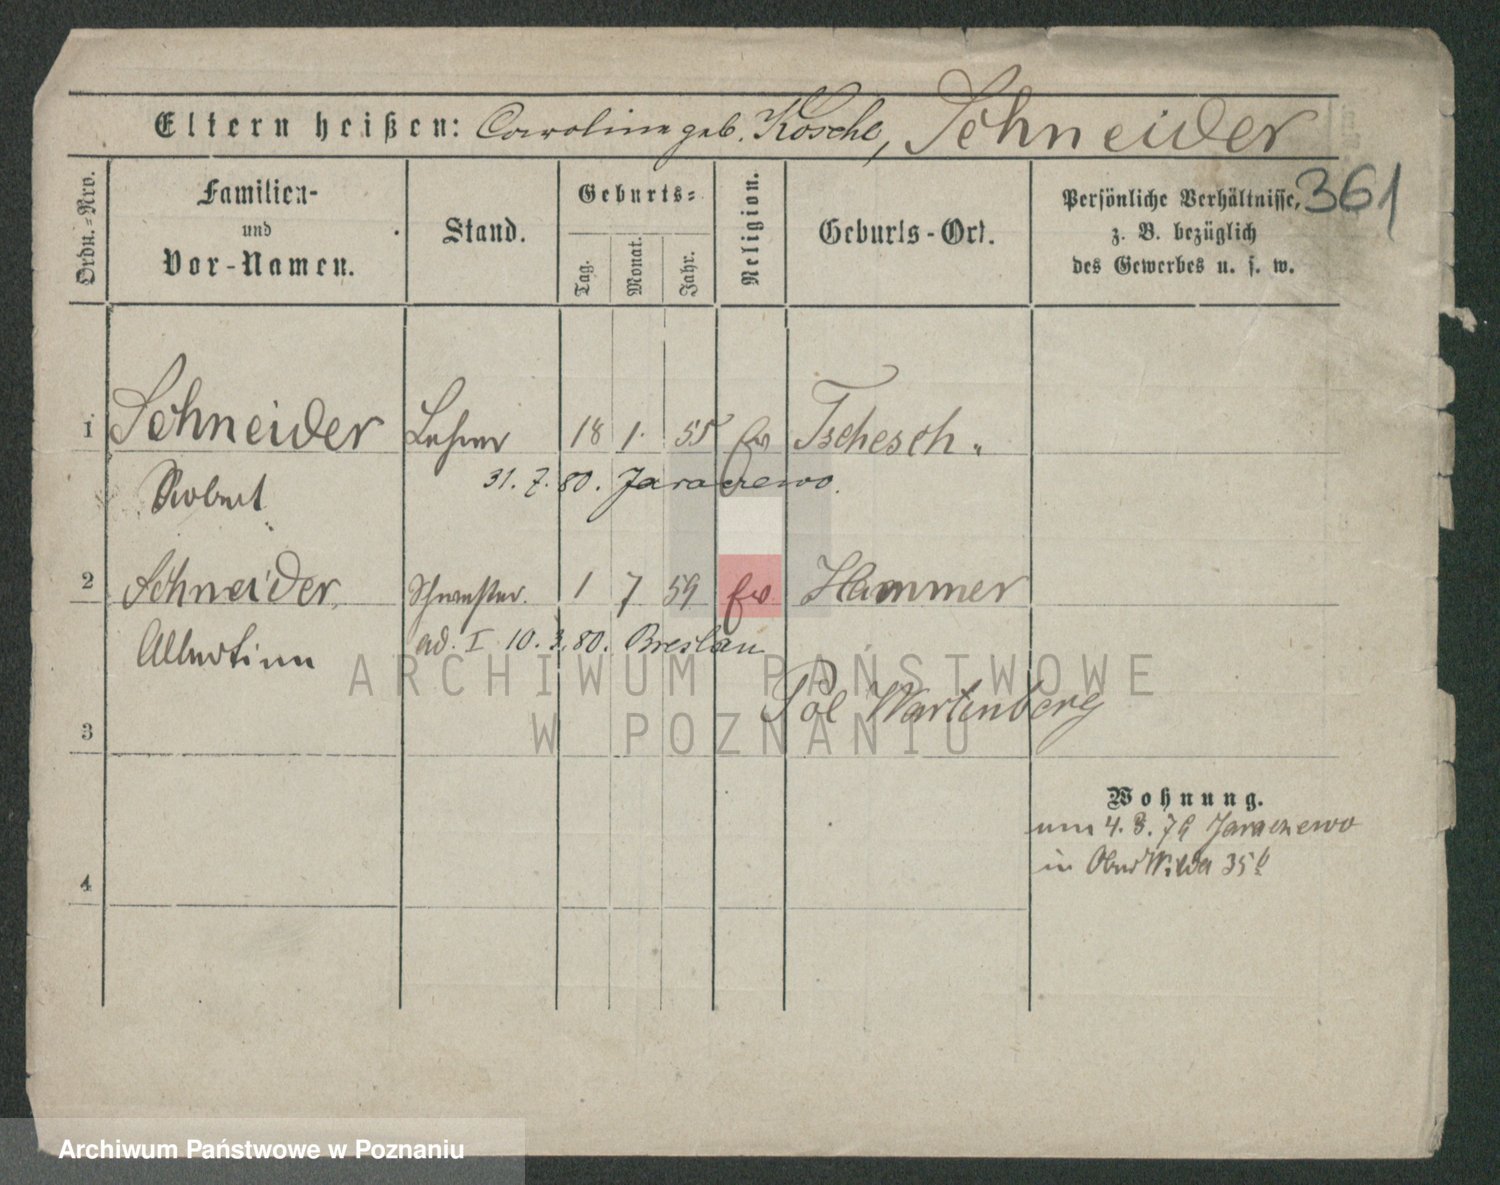 Eltern heißen: Caroline geb. Kosche, Schneider
361
Ordn.-Nro.
Familien-
und
Vor-Namen.
Stand.
Geburts-
Tag.
Monat.
Jahr.
Religion.
Geburts-Ort.
Persönliche Verhältnisse,
z. B. bezüglich
des Gewerbes u. s. w.
1 Schneider Lehrer 18 1. 55 Ev Tschesch.
Robert 31. 7. 80. Jaraczewo.
2 Schneider, Schwester. 1 7 59 Ev Hammer
Albertine ad. I 10. 3. 80. Breslau
Pol Wartenberg
3
Wohnung.
um 4. 8. 79 Jaraczewo
in Ober Wilda 35b
4
ARCHIWUM PAŃSTWOWE
W POZNANIU
Archiwum Państwowe w Poznaniu